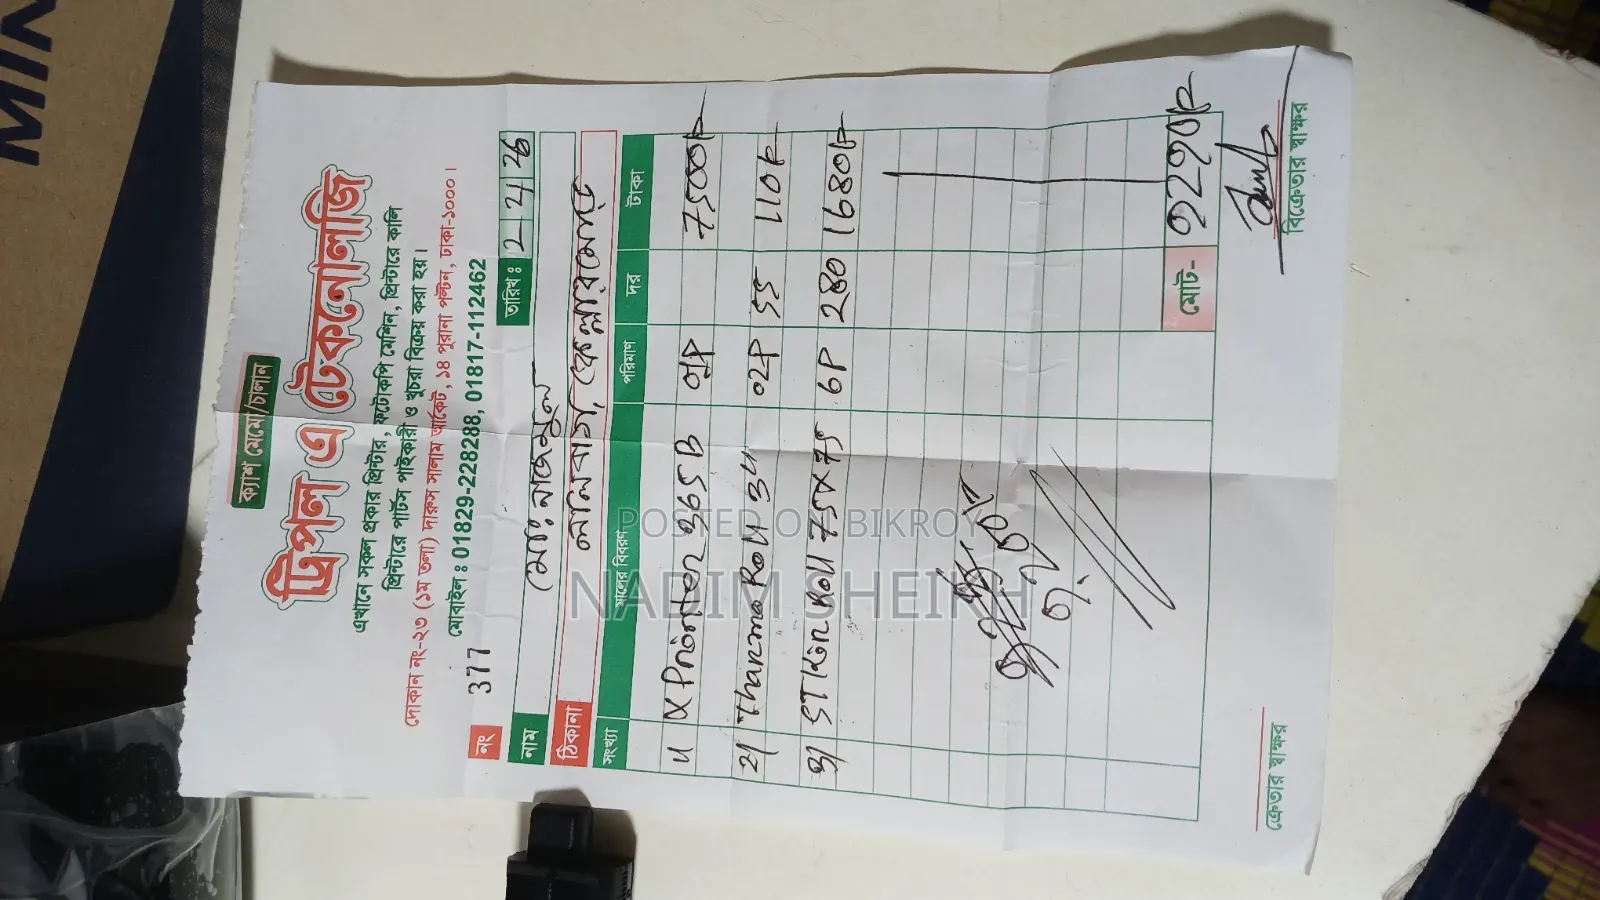 MIN
ক্যাশ মেমো/চালান
ট্রিপল এ টেকনোলজি
এখানে সকল প্রকার প্রিন্টার, ফটোকপি মেশিন, প্রিন্টারে কালি
প্রিন্টারে পার্টস পাইকারী ও খুচরা বিক্রয় করা হয়।
দোকান নং-২৩ (১ম তলা) দারুস সালাম আর্কেট, ১৪ পুরানা পল্টন, ঢাকা-১০০০।
মোবাইল : 01829-228288, 01817-112462
নং 377 তারিখ :
নাম মোঃ নাজমুল
ঠিকানা লালবাগ,
সংখ্যা মালের বিবরণ পরিমাণ দর টাকা
১/ X Printer 365B ১P 7500/-
২/ Tharmo Roll 3" 02P 55 110/-
৩/ STikir Roll 75X75 6P 280 1680/-
মোট-
ক্রেতার স্বাক্ষর বিক্রেতার স্বাক্ষর
POSTED ON BIKROY
NADIM SHEIKH